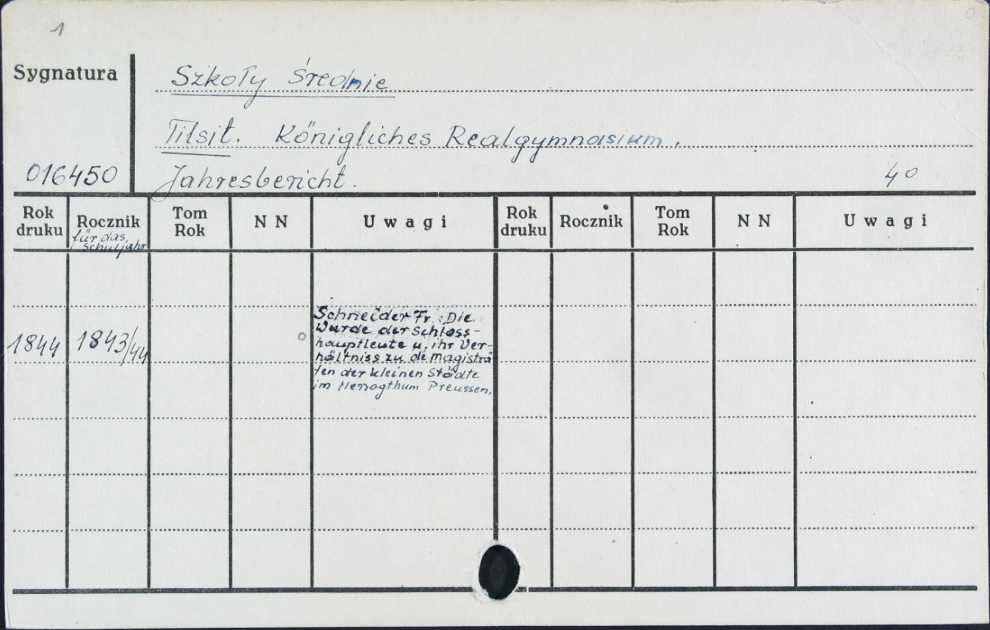 1
Sygnatura
Szkoły Średnie
Tilsit. Königliches Realgymnasium.
016450
Jahresbericht.
4o
Rok druku
Rocznik
für das Schuljahr
Tom Rok
N N
Uwagi
Rok druku
Rocznik
Tom Rok
N N
Uwagi
1844
1843/44
Schneider Fr.: Die
Würde der Schloss-
hauptleute u. ihr Ver-
hältniss zu de Magistra
ten der kleinen Städte
im Herzogthum Preussen.